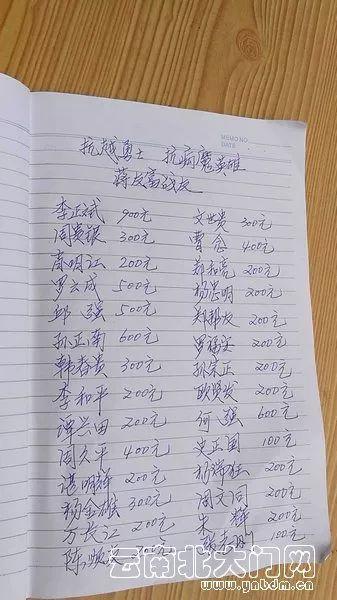 MEMO NO.
DATE
抗越勇士 抗病魔英雄
蒋友富战友
李正斌 900元 文世贵 300元
周贵银 300元 曹念 400元
商明江 200元 郑和亮 200元
罗云成 500元 杨忠明 200元
邱强 500元 郑帮友 200元
孙正南 600元 罗福安 200元
韩春贵 300元 孙荣正 200元
李和平 200元 欧贤发 200元
谭兴田 200元 何强 600元
周久平 400元 史正国 100元
谌明祥 200元 杨 200元
杨金雄 300元 周文同 200元
万长江 200元 辉 200元
陈 元 100元
云南北大门网
www.ynbdm.com